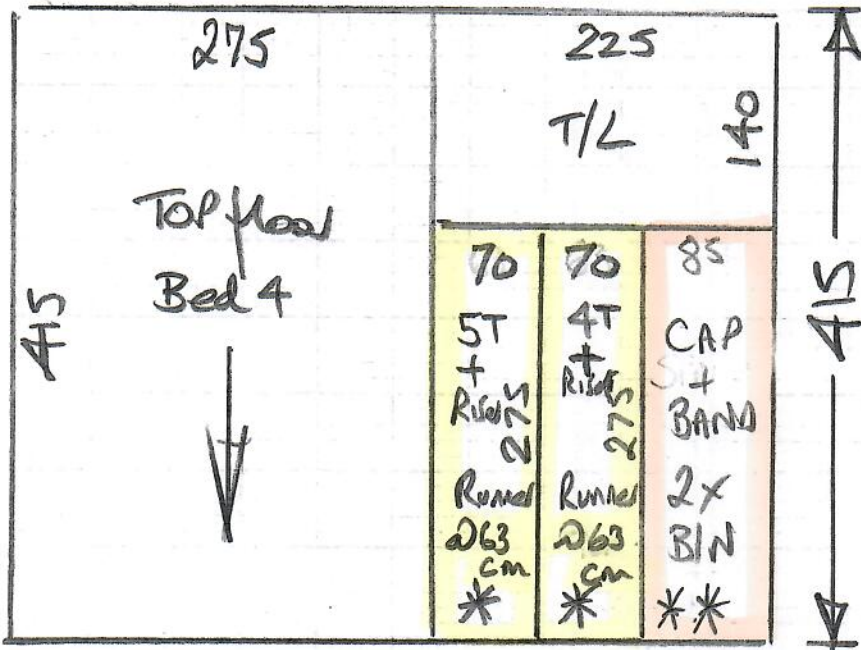 275
225
T/L
140
TOP floor
Bed 4
415
415
70
5T
+
Riser
275
Runner
@63
cm
*
70
4T
+
Riser
275
Runner
@63
cm
*
85
CAP
+
BAND
2x
BIN
**